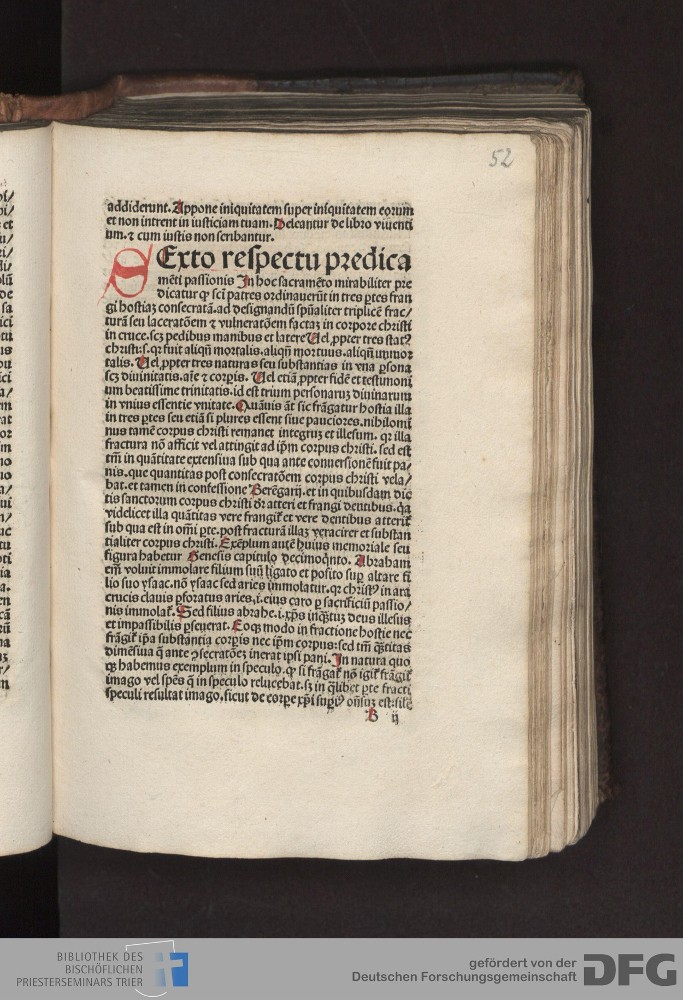 52
addiderunt. Appone iniquitatem super iniquitatem eorum
et non intrent in iusticiam tuam. Deleantur de libro viuenti
um. ⁊ cum iustis non scribantur.
SExto respectu predica
mēti passionis In hoc sacramēto mirabiliter pre
dicatur ꝙ sci patres ordinauerūt in tres ꝑtes fran
gi hostiaꝫ consecratā. ad designandū spūaliter triplicē frac/
turā seu laceratōem ⁊ vulneratōem factaꝫ in corpore christi
in cruce. scꝫ pedibus manibus et latere Uel ꝓpter tres statꝰ
christi: s. qr fuit aliqñ mortalis. aliqñ mortuus. aliqñ immor
talis. Uel ꝓpter tres naturas seu substantias in vna ꝑsona
scꝫ diuinitatis. aīe ⁊ corꝑis. Uel etiā ꝓpter fidē et testimoni
um beatissime trinitatis. id est trium personarum diuinarum
in vnius essentie vnitate. Quāuis āt sic frāgatur hostia illa
in tres ꝑtes seu etiā si plures essent siue pauciores. nihilomi
nus tamē corpus christi remanet integrum et illesum. qr illa
fractura nō afficit vel attingit ad ipm̄ corpus christi. sed est
tm̄ in quātitate extensiua sub qua ante conuersionē fuit pa/
nis. que quantitas post consecratōem corpus christi vela/
bat. et tamen in confessione Berēgarij. et in quibusdam dic
tis sanctorum corpus christi dr̄ atteri et frangi dentibus. qꝛ
videlicet illa quātitas vere frangitͬ et vere dentibus atteritͬ
sub qua est in om̄i ꝑte. post fracturā illaꝫ veraciter et substan
tialiter corpus christi. Exēplum autē huius memoriale seu
figura habetur Genesis capitulo decimoqͥnto. Abraham
em̄ voluit immolare filium suū ligato et posito suꝑ altare fi
lio suo ysaac. nō ysaac sed aries immolatur. qr christꝰ in ara
crucis clauis ꝑforatus aries. i. eius caro ꝑ sacrificiū passio/
nis immolatͬ. Sed filius abrahe. i. xp̄s inqͣꝫtuꝫ deus illesus
et impassibilis ꝑseuerat. Eoqꝫ modo in fractione hostie nec
frāgitͬ ip̄a substantia corꝑis nec ip̄m corpus: sed tm̄ qͣꝫtitas
dimēsiua q̄ ante ꝯsecratōeꝫ inerat ipsi pani. In natura quo
qꝫ habemus exemplum in speculo. ꝙ si frāgatͬ nō igitͬ frāgitͬ
imago vel spēs q̄ in speculo relucebat. sꝫ in qͣlibet ꝑte fracti
speculi resultat imago, sicut de corꝑe xp̄i suꝑiꝰ oñsuꝫ est: silē
B ij
BIBLIOTHEK DES
BISCHÖFLICHEN
PRIESTERSEMINARS TRIER
gefördert von der
Deutschen Forschungsgemeinschaft
DFG